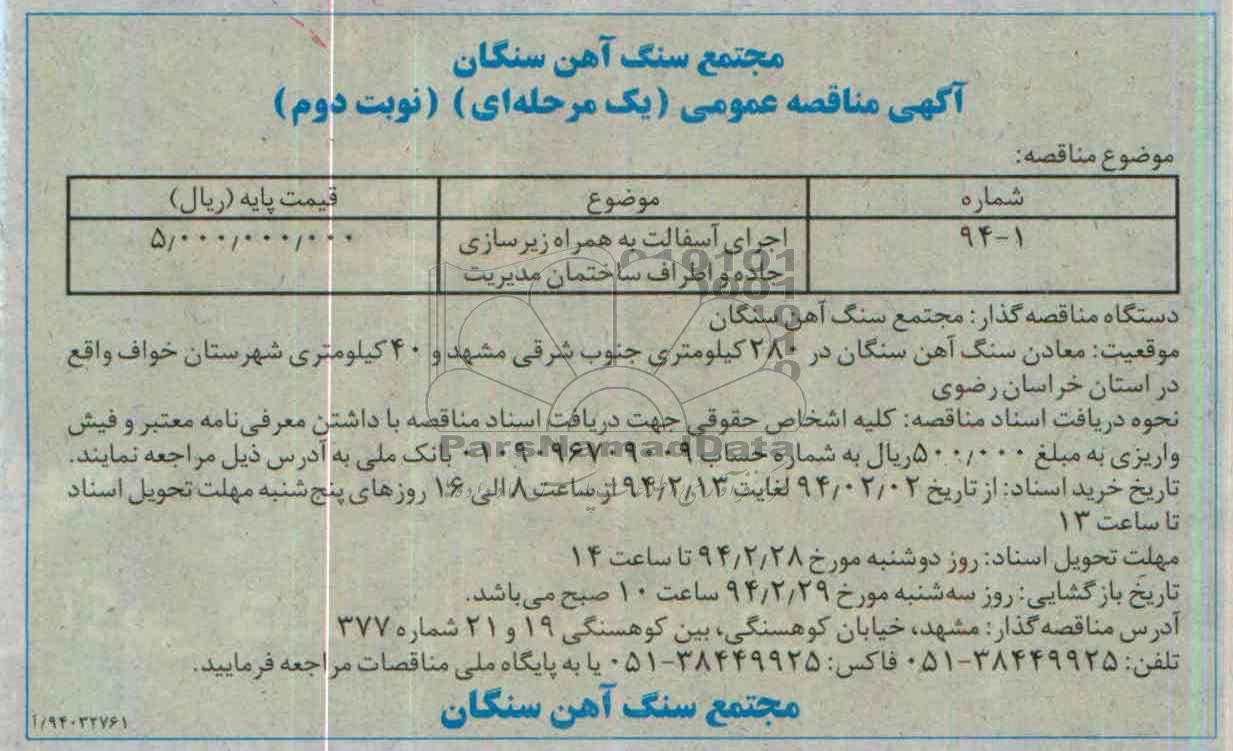 مجتمع سنگ آهن سنگان
آگهی مناقصه عمومی (یک مرحله‌ای) (نوبت دوم)
موضوع مناقصه:
شماره موضوع قیمت پایه (ریال)
۹۴-۱ اجرای آسفالت به همراه زیرسازی ۵٫۰۰۰٫۰۰۰٫۰۰۰
جاده و اطراف ساختمان مدیریت
دستگاه مناقصه گذار: مجتمع سنگ آهن سنگان
موقعیت: معادن سنگ آهن سنگان در ۲۸۰ کیلومتری جنوب شرقی مشهد و ۴۰ کیلومتری شهرستان خواف واقع
در استان خراسان رضوی
نحوه دریافت اسناد مناقصه: کلیه اشخاص حقوقی جهت دریافت اسناد مناقصه با داشتن معرفی‌نامه معتبر و فیش
واریزی به مبلغ ۵۰۰٫۰۰۰ریال به شماره حساب ۰۱۰۹۰۹۶۷۰۹۰۰۹ بانک ملی به آدرس ذیل مراجعه نمایند.
تاریخ خرید اسناد: از تاریخ ۹۴٫۰۲٫۰۲ لغایت ۹۴٫۲٫۱۳ از ساعت ۸ الی ۱۶ روزهای پنج‌شنبه مهلت تحویل اسناد
تا ساعت ۱۳
مهلت تحویل اسناد: روز دوشنبه مورخ ۹۴٫۲٫۲۸ تا ساعت ۱۴
تاریخ بازگشایی: روز سه‌شنبه مورخ ۹۴٫۲٫۲۹ ساعت ۱۰ صبح می‌باشد.
آدرس مناقصه گذار: مشهد، خیابان کوهسنگی، بین کوهسنگی ۱۹ و ۲۱ شماره ۳۷۷
تلفن: ۳۸۴۴۹۹۲۵-۰۵۱ فاکس: ۳۸۴۴۹۹۲۵-۰۵۱ یا به پایگاه ملی مناقصات مراجعه فرمایید.
مجتمع سنگ آهن سنگان
۹۴۰۳۲۷۶۱/آ
ParsNamadData